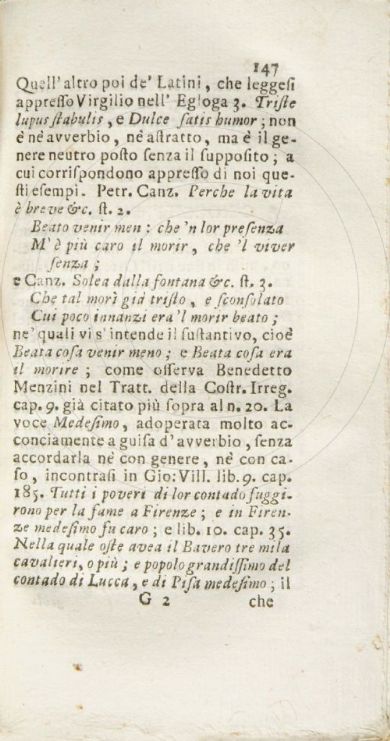 147
Quell'altro poi de' Latini, che leggesi
appresso Virgilio nell' Egloga 3. Triste
lupus stabulis, e Dulce satis humor; non
è nè avverbio, nè astratto, ma è il ge-
nere neutro posto senza il supposito; a
cui corrispondono appresso di noi que-
sti esempi. Petr. Canz. Perche la vita
è breve &c. st. 2.
Beato venir men: che 'n lor presenza
M' è più caro il morir, che 'l viver
senza;
e Canz. Solea dalla fontana &c. st. 3.
Che tal morì già tristo, e sconsolato
Cui poco innanzi era 'l morir beato;
ne' quali vi s' intende il sustantivo, cioè
Beata cosa venir meno; e Beata cosa era
il morire; come osserva Benedetto
Menzini nel Tratt. della Costr. Irreg.
cap. 9. già citato più sopra al n. 20. La
voce Medesimo, adoperata molto ac-
conciamente a guisa d'avverbio, senza
accordarla nè con genere, nè con ca-
so, incontrasi in Gio: Vill. lib. 9. cap.
185. Tutti i poveri di lor contado fuggi-
rono per la fame a Firenze; e in Firen-
ze medesimo fu caro; e lib. 10. cap. 35.
Nella quale oste avea il Bavero tre mila
cavalieri, o più; e popolo grandissimo del
contado di Lucca, e di Pisa medesimo; il
G 2 che